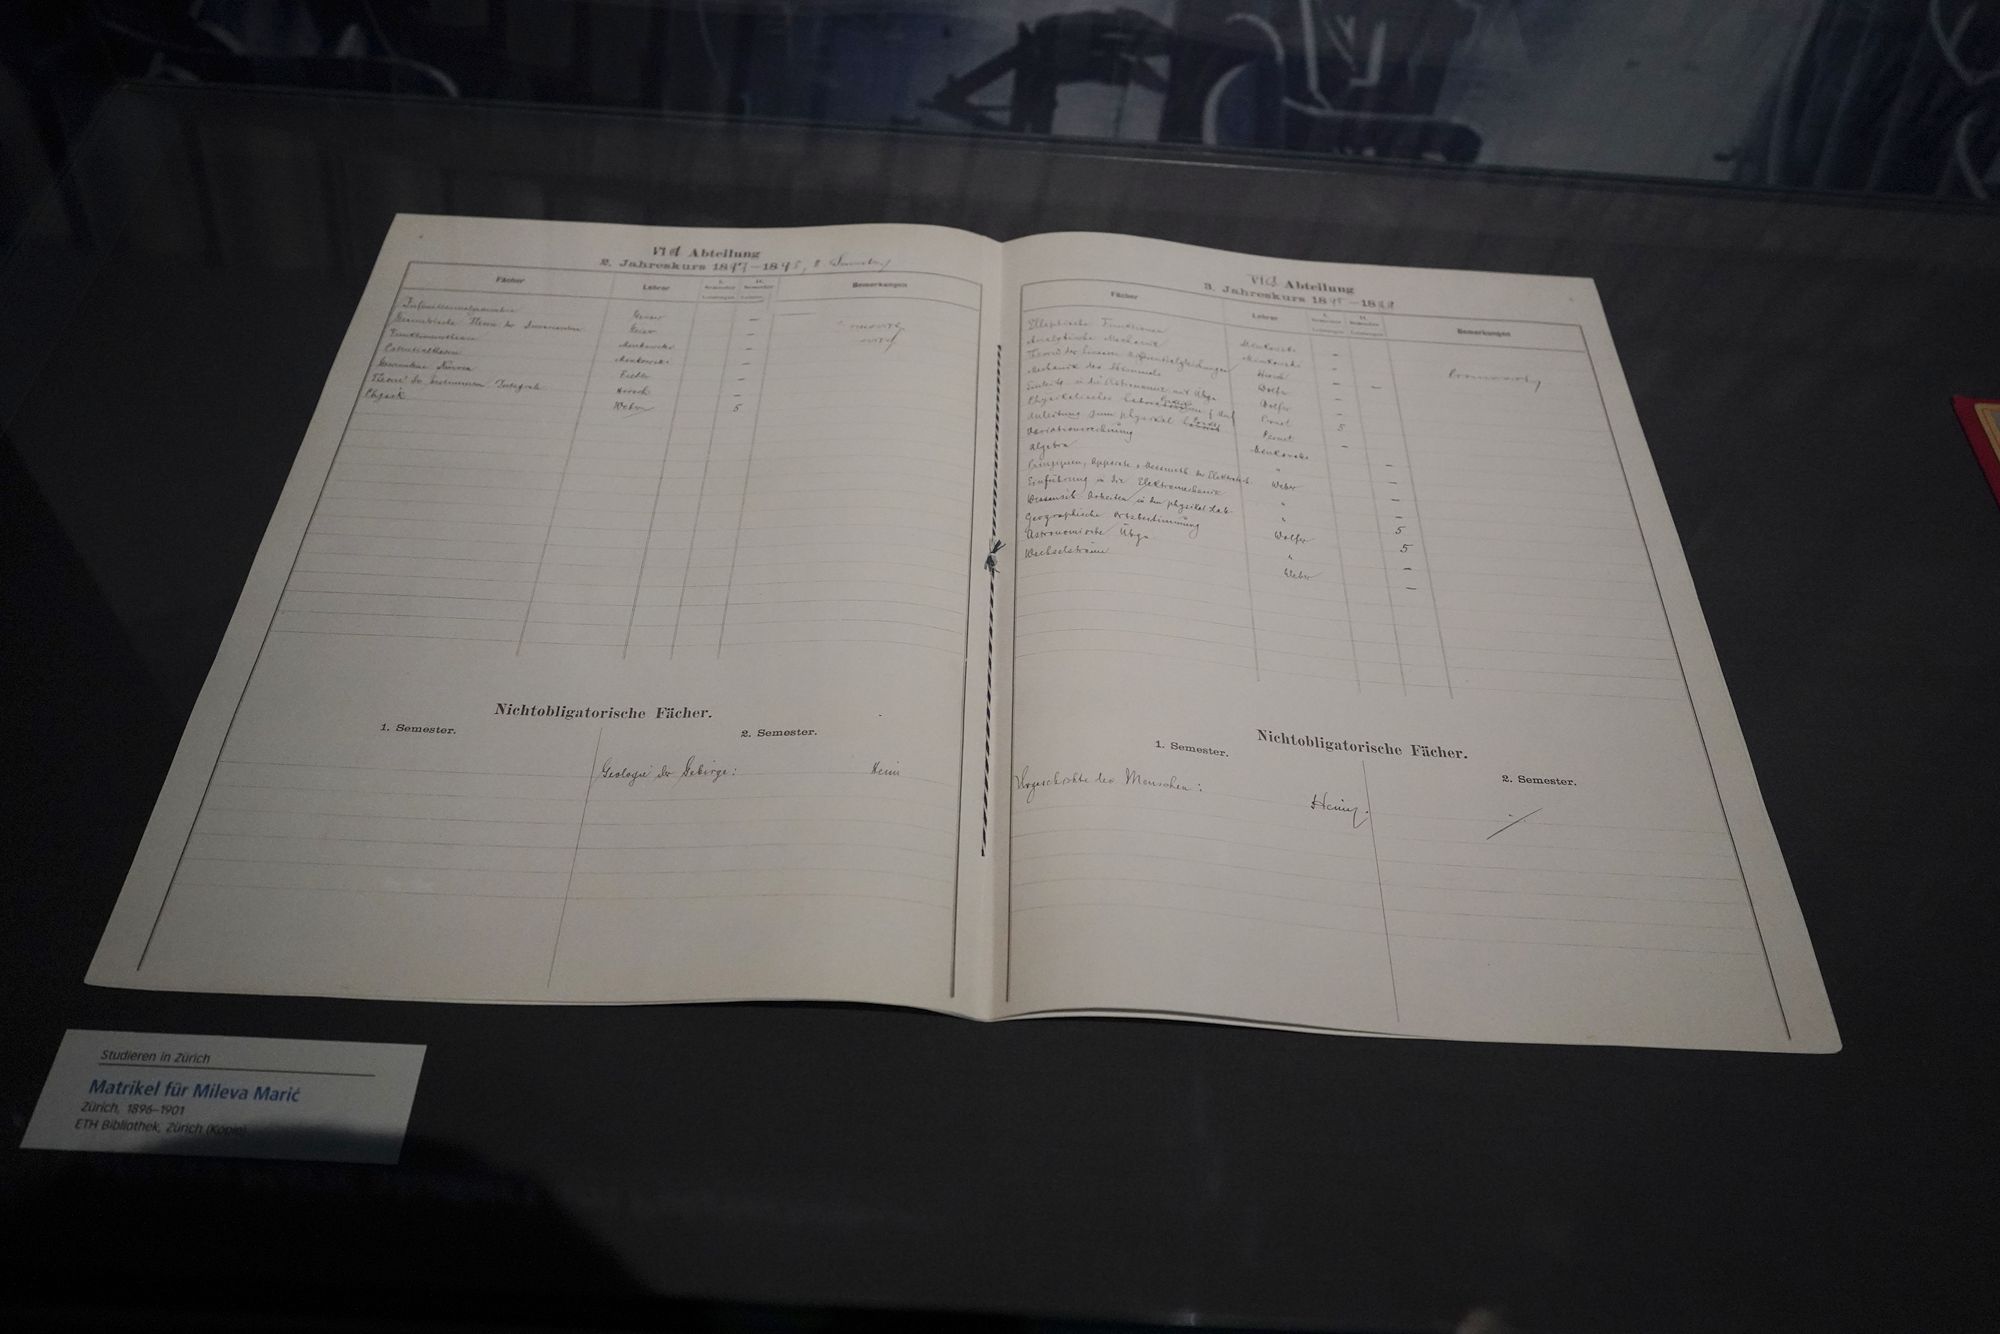 VI A Abteilung
2. Jahreskurs 1897–1898, 2. Semester
Fächer Lehrer I. Semester II. Semester Bemerkungen
Leistungen Leistungen
Infinitesimalgeometrie Geiser –
Geometrische Theorie der Invarianten Geiser –
Funktionentheorie Minkowski –
Potentialtheorie Minkowski –
Fiedler –
Theorie der bestimmten Integrale Hirsch –
Physik Weber 5
Nichtobligatorische Fächer.
1. Semester. 2. Semester.
Geologie der Gebirge: Heim
VI A Abteilung
3. Jahreskurs 1898–1899
Fächer Lehrer I. Semester II. Semester Bemerkungen
Leistungen Leistungen
Elliptische Funktionen Minkowski –
Analytische Mechanik Minkowski –
Theorie der linearen Differentialgleichungen Hirsch – –
Mechanik des Himmels Wolfer –
Einleitg in die Astronomie mit Übgn Wolfer –
Physikalisches Pernet 5
Anleitung zum physikal. Pernet –
Variationsrechnung Minkowski –
Algebra " –
Prinzipien, Apparate u. Messmeth. der Elektrotech. Weber –
Einführung in die Elektromechanik " –
Wissensch. Arbeiten in den physikal. Lab. " 5
Geographische Ortsbestimmung Wolfer 5
Astronomische Übgn " –
Wechselströme Weber –
Nichtobligatorische Fächer.
1. Semester. 2. Semester.
Urgeschichte des Menschen: Heim
Studieren in Zürich
Matrikel für Mileva Marić
Zürich, 1896–1901
ETH Bibliothek, Zürich (Kopie)